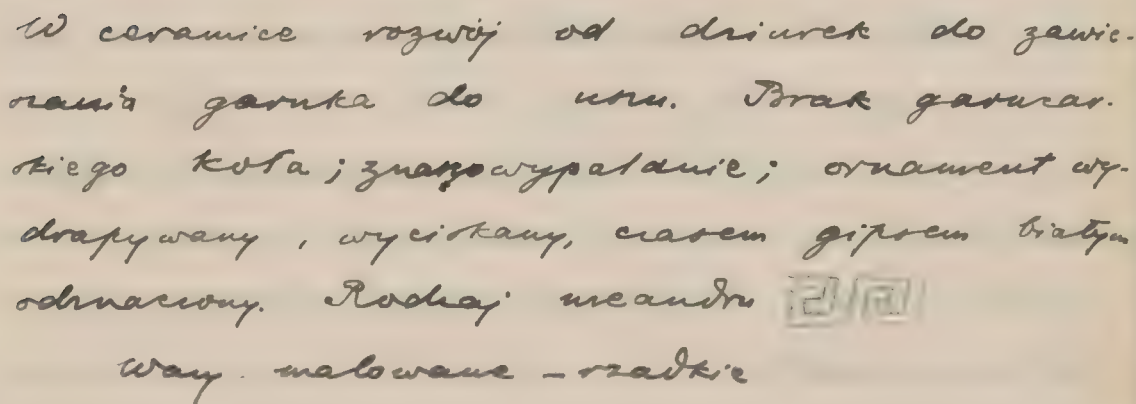 W ceramice rozwój od dziurek do zawie-
szania garnka do uszu. Brak garncar-
skiego koła; znano wypalanie; ornament wy-
drapywany, wyciskany, czasem gipsem białym
odznaczony. Rodzaj meandru
Wazy malowane - rzadkie